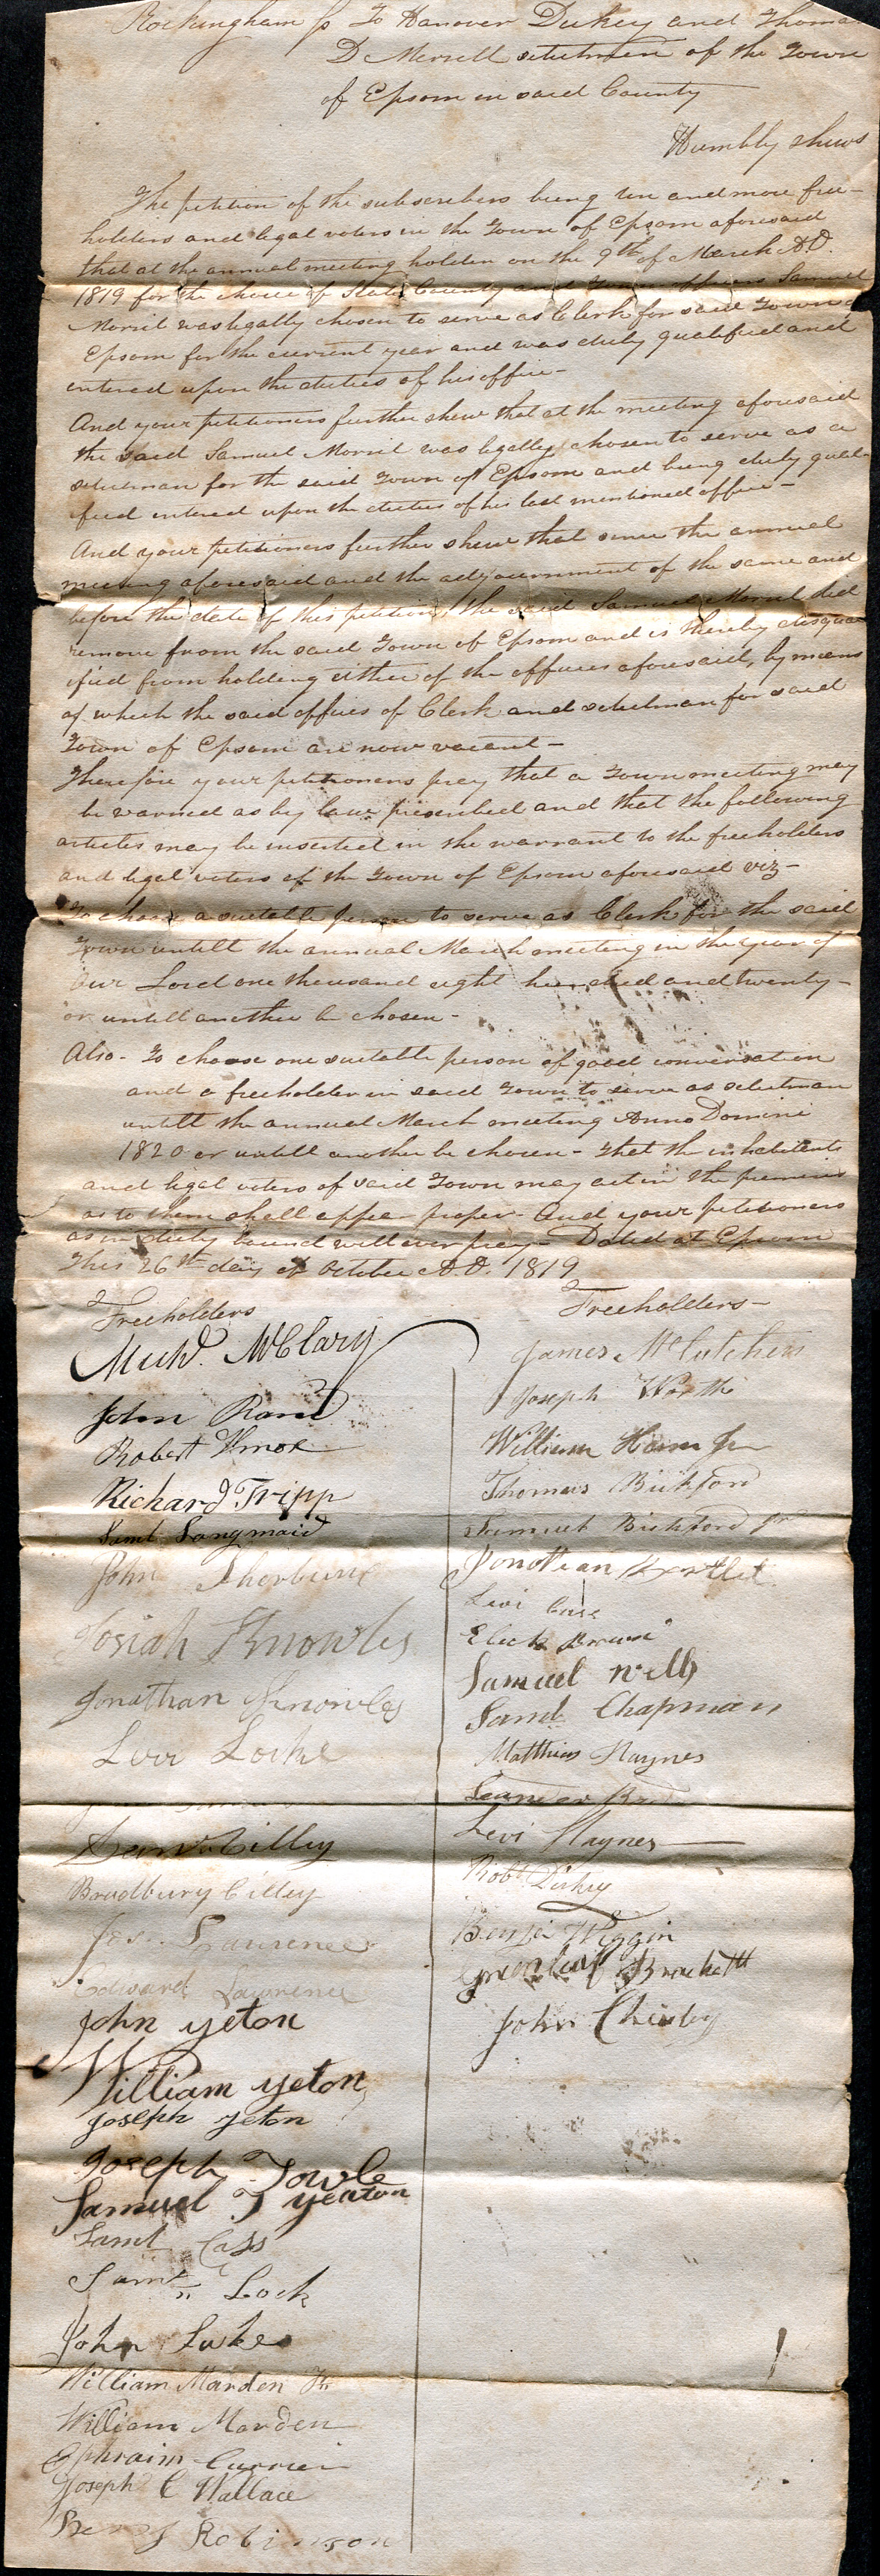 Rockingham ss To Hanover Dickey and Thomas
D Merrill selectmen of the Town
of Epsom in said County
Humbly shews
The petition of the subscribers being ten and more free-
holders and legal voters in the Town of Epsom aforesaid
that at the annual meeting holden on the 9th of March A.D.
1819 for the choice of State County and Town officers Samuel
Morril was legally chosen to serve as Clerk for said Town of
Epsom for the current year and was duly qualified and
entered upon the duties of his office-
And your petitioners further shew that at the meeting aforesaid
the said Samuel Morril was legally chosen to serve as a
selectman for the said Town of Epsom and being duly quali-
fied entered upon the duties of his last mentioned office-
And your petitioners further shew that since the annual
meeting aforesaid and the adjournment of the same and
before the date of this petition, the said Samuel Morril did
remove from the said Town of Epsom and is thereby disqual
ified from holding either of the offices aforesaid, by means
of which the said offices of Clerk and selectman for said
Town of Epsom are now vacant-
Therefore your petitioners pray that a Town meeting may
be warned as by law prescribed and that the following
articles may be inserted in the warrant to the freeholders
and legal voters of the Town of Epsom aforesaid viz-
To choose a suitable person to serve as Clerk for the said
Town untill the annual March meeting in the year of
our Lord one thousand eight hundred and twenty-
or untill another be chosen-
Also- To choose one suitable person of good conversation
and a freeholder in said Town to serve as selectman
untill the annual March meeting Anno Domini
1820 or untill another be chosen- That the inhabitants
and legal voters of said Town may act in the premises
as to them shall appear proper- And your petitioners
as in duty bound will ever pray- Dated at Epsom
this 26th day of October A.D. 1819
Freeholders
Michl. McClary
John Rand
Robert Knox
Richard Tripp
Saml Langmaid
John Sherburne
Josiah Knowles
Jonathan Knowles
Levi Locke
Cilley
Bradbury Cilley
Lawrence
Edward Lawrence
John yeton
William yeton
Joseph yeton
Joseph Towle
Samuel T yeaton
Saml Cass
Saml Lock
John Lake
William Marden Jr
William Marden
Ephraim Currier
Joseph C Wallace
Robinson
Freeholders-
James McCutchen
Joseph Worth
William Ham Jr
Thomas Bickford
Samuel Bickford Jr
Jonathan Bartlet
Levi Cass
Brown
Samuel Wells
Saml Chapman
Matthias Haynes
Leander
Levi Haynes
Robt Dickey
Benja Wiggin
Greenleaf Brackett
John Chesley